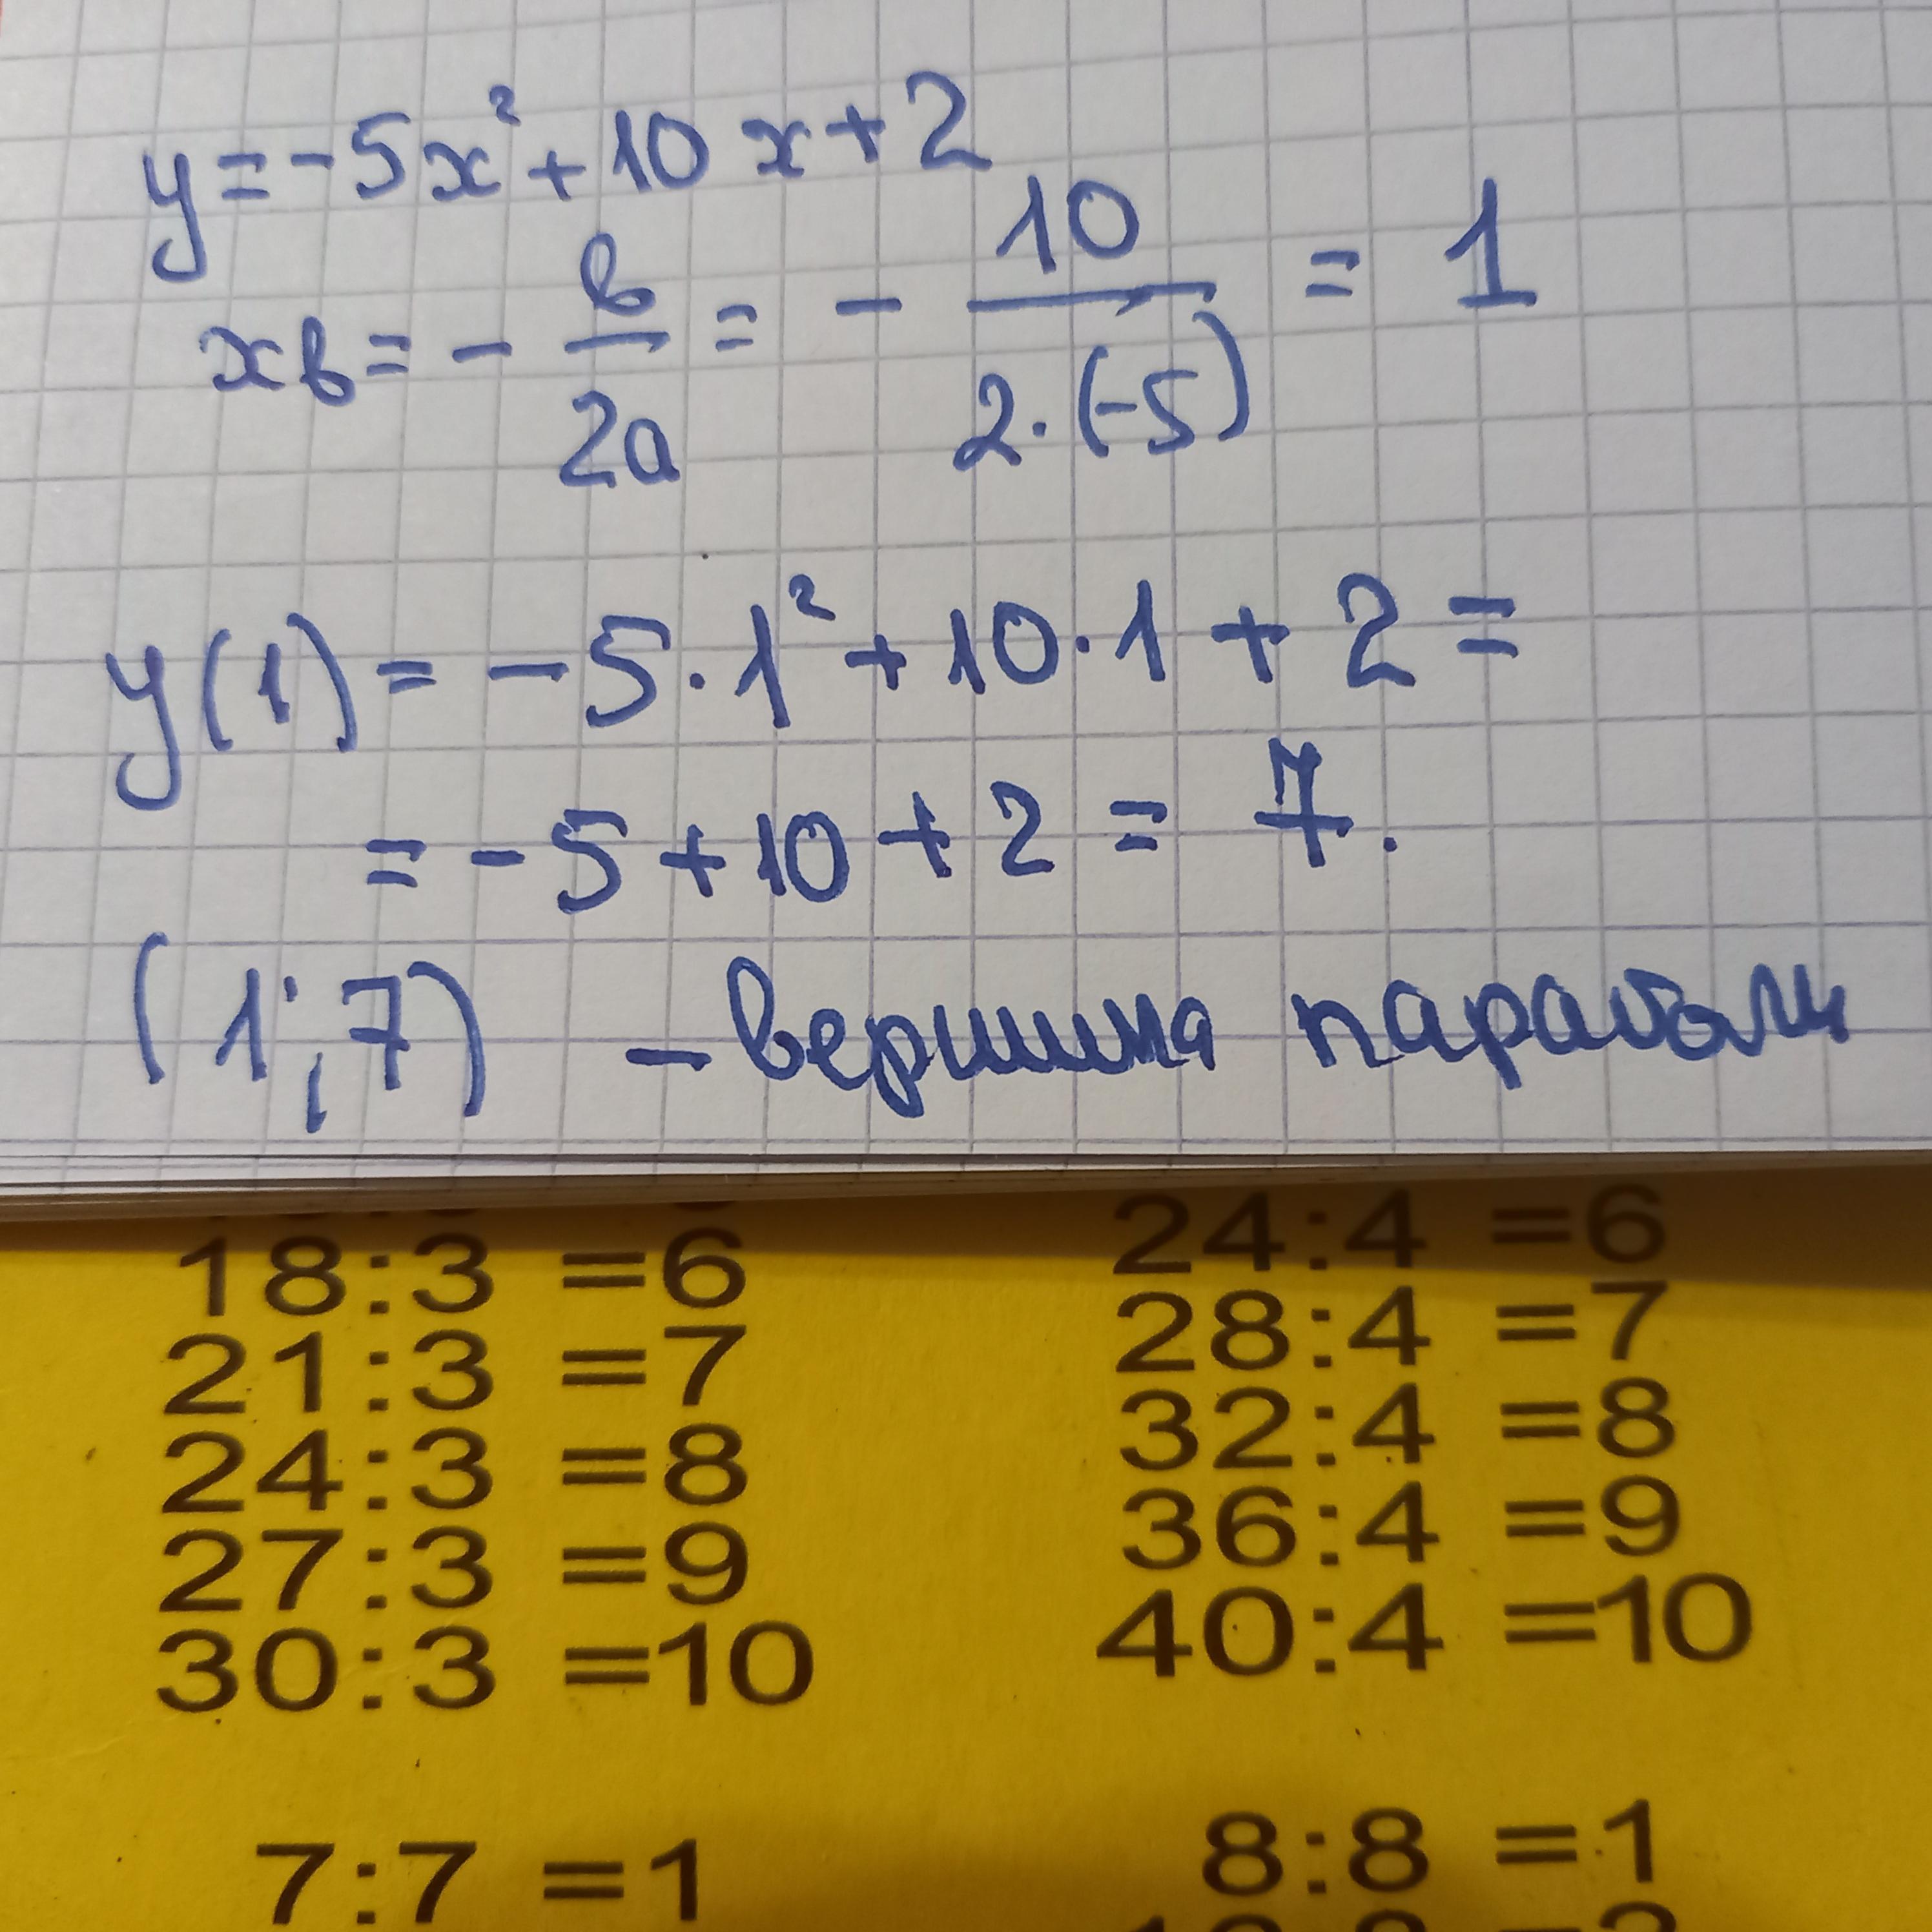 y=-5x²+10x+2
xв=-в/2a=-10/2·(-5)=1
y(1)=-5·1²+10·1+2=
=-5+10+2=7.
(1;7) -вершина параболи
18:3=6
21:3=7
24:3=8
27:3=9
30:3=10
7:7=1
24:4=6
28:4=7
32:4=8
36:4=9
40:4=10
8:8=1